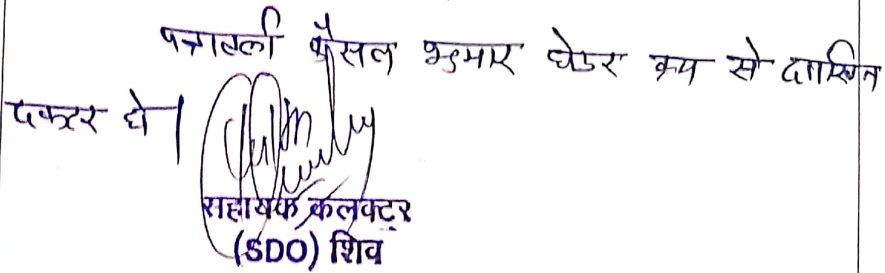 पत्रावली फैसल शुमार होकर क्रम से दाखिल
दफ्तर हो।
सहायक कलक्टर
(SDO) शिव